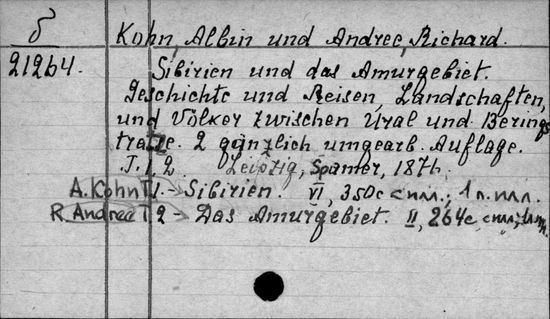 δ Kohn, Albin und Andree, Richard.
21264. Sibirien und das Amurgebiet.
Geschichte und Reisen, Landschaften,
und Völker zwischen Ural und Berings
trasse. 2 gänzlich umgearb. Auflage.
T. 1, 2. Leipzig, Spamer, 1876.
A. Kohn T. 1 – Sibirien. VI, 350 с илл., 1 л. илл.
R. Andree T. 2 – Das Amurgebiet. II, 264 с илл.,